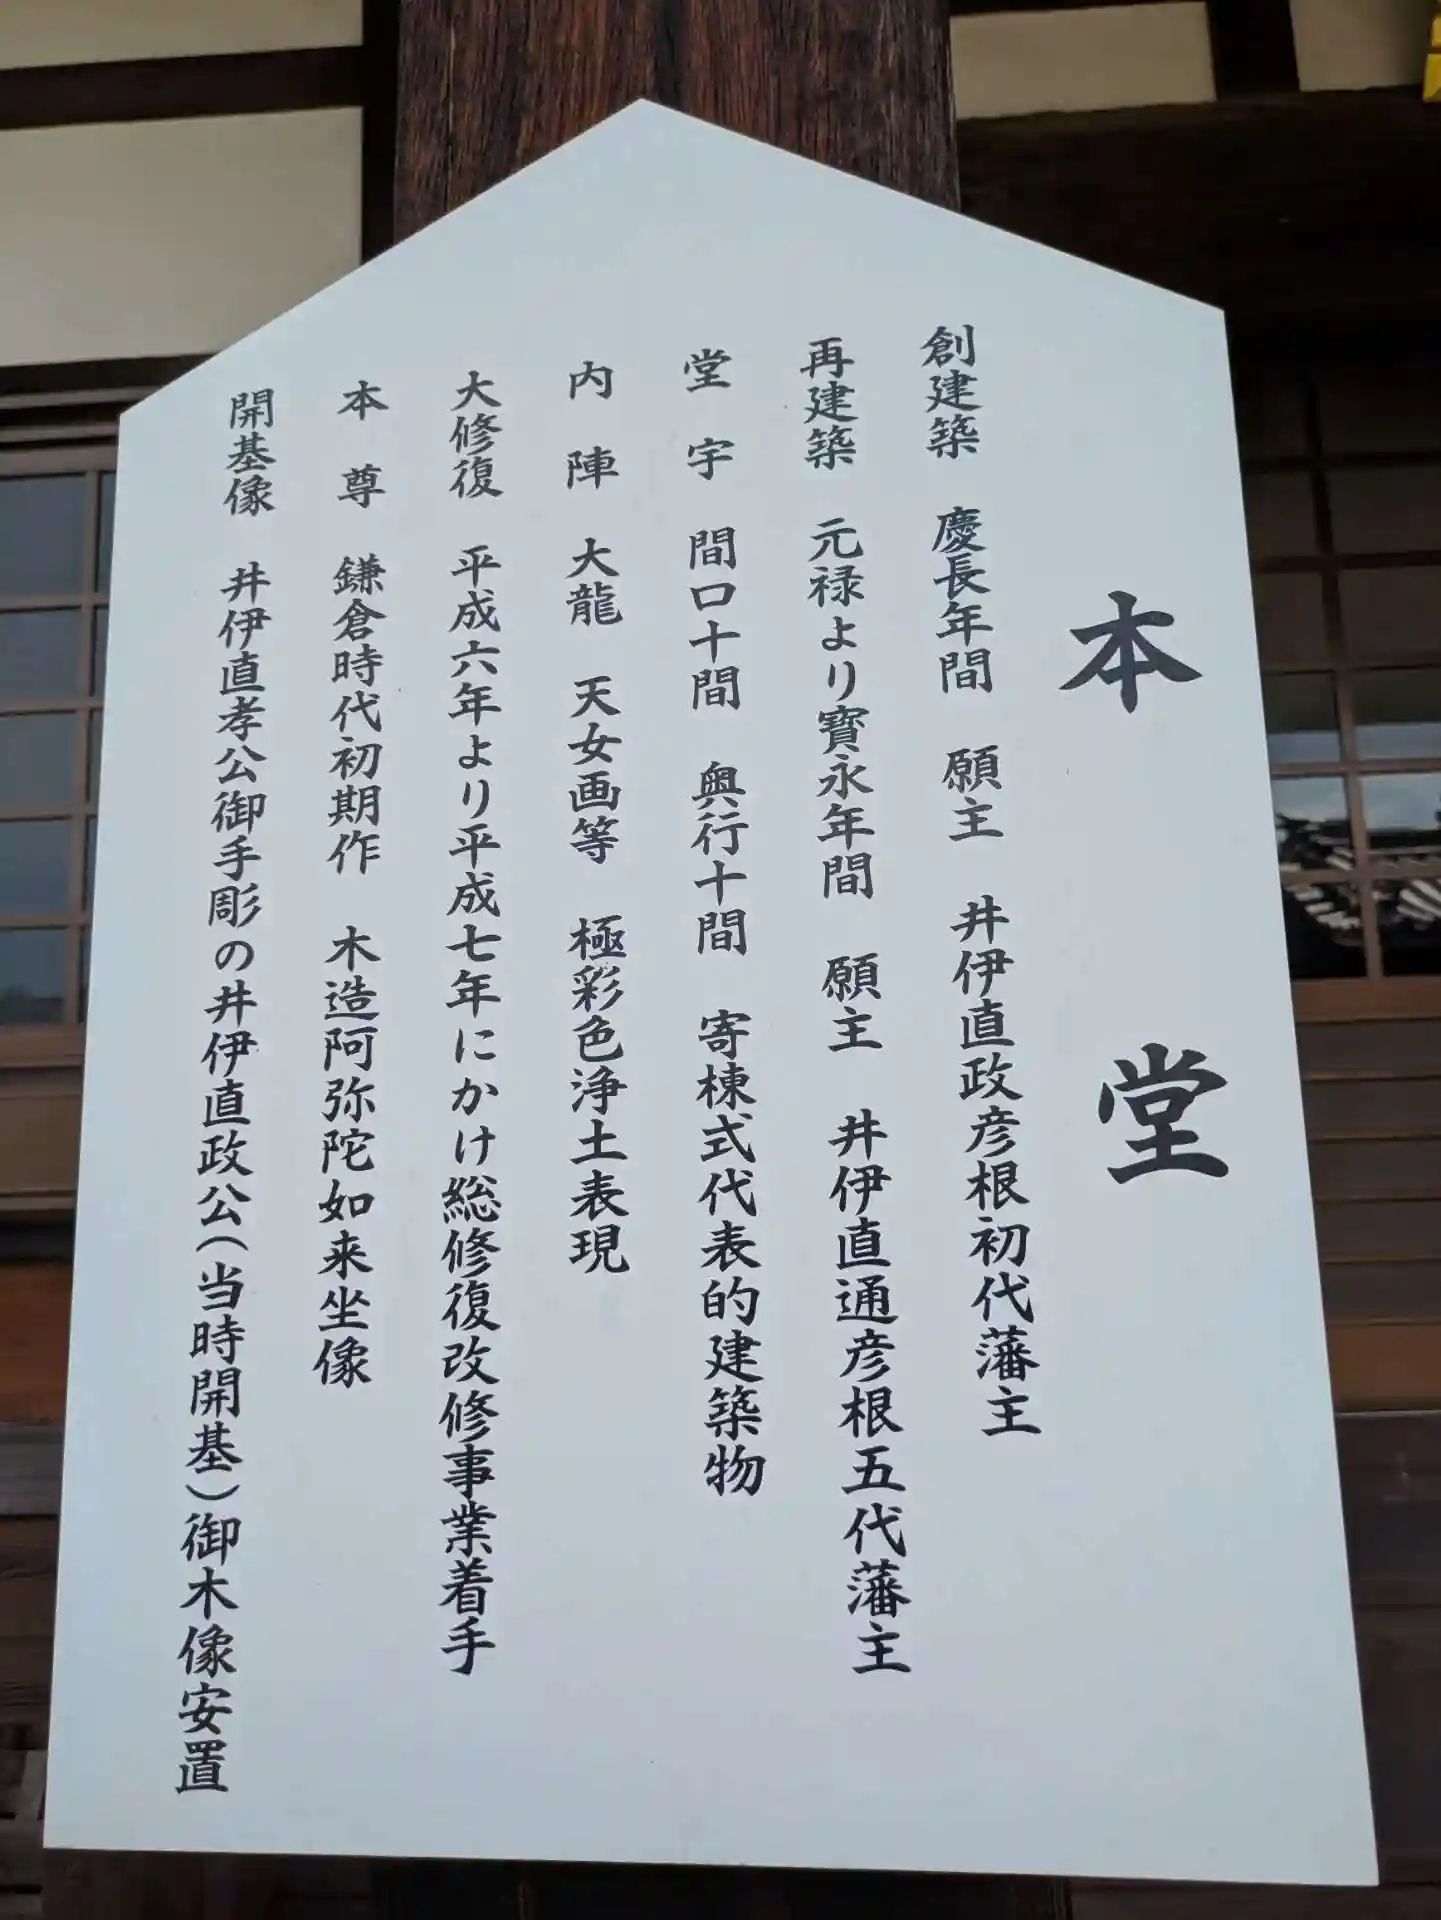 本堂
創建築　慶長年間　願主　井伊直政彦根初代藩主
再建築　元禄より寶永年間　願主　井伊直通彦根五代藩主
堂宇　間口十間　奥行十間　寄棟式代表的建築物
内陣　大龍　天女画等　極彩色浄土表現
大修復　平成六年より平成七年にかけ総修復改修事業着手
本尊　鎌倉時代初期作　木造阿弥陀如来坐像
開基像　井伊直孝公御手彫の井伊直政公（当時開基）御木像安置